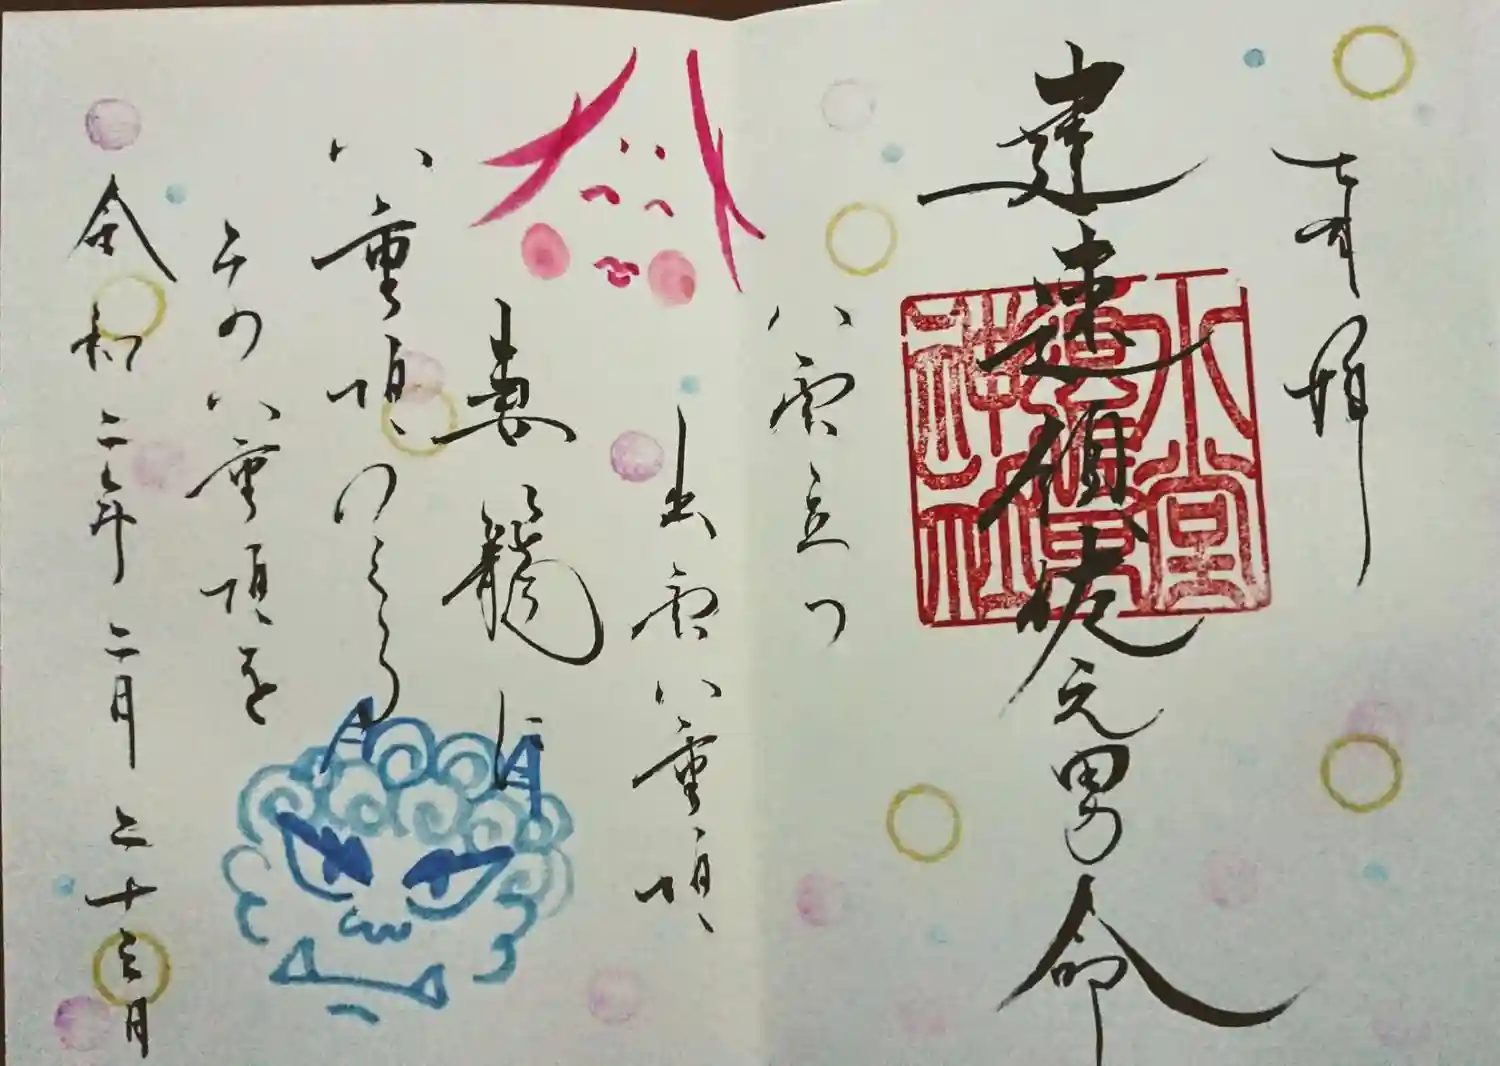 奉拝
建速須佐之男命
八雲立つ
出雲八重垣
妻籠に
八重垣つくる
その八重垣を
令和二年二月二十三日
神社